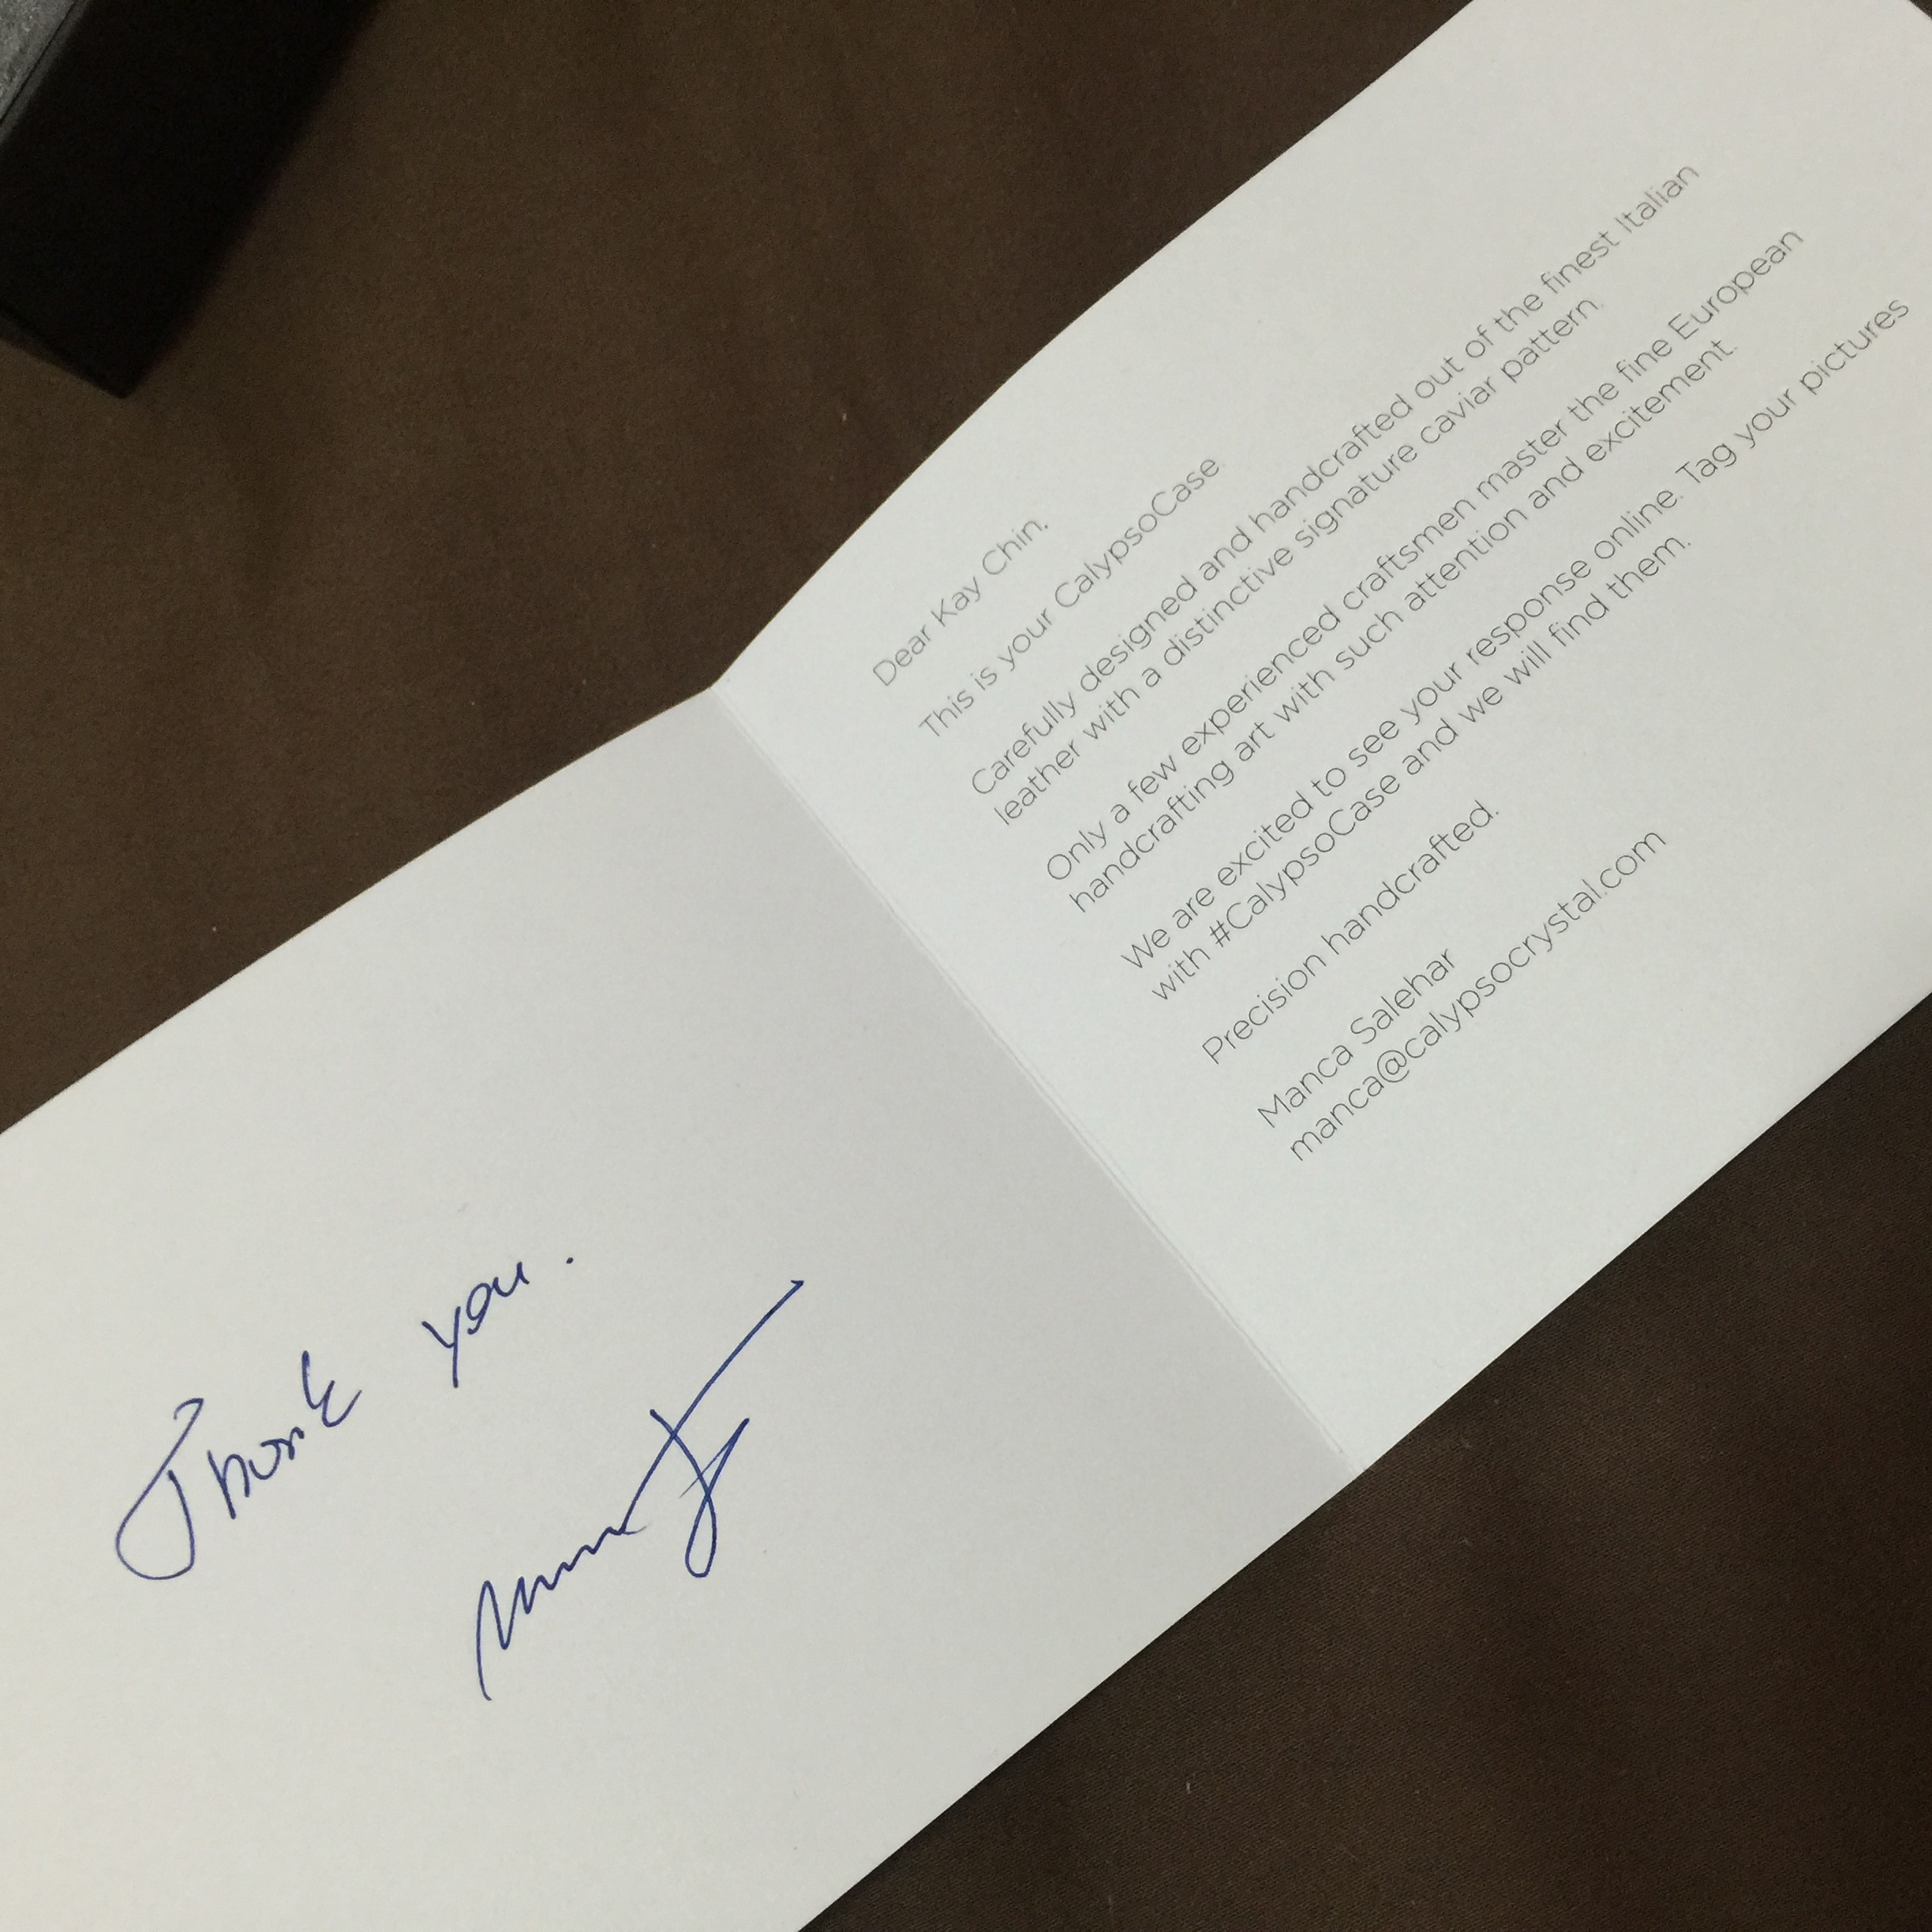 Thank you.
Dear Kay Chin,
This is your CalypsoCase.
Carefully designed and handcrafted out of the finest Italian
leather with a distinctive signature caviar pattern.
Only a few experienced craftsmen master the fine European
handcrafting art with such attention and excitement.
We are excited to see your response online. Tag your pictures
with #CalypsoCase and we will find them.
Precision handcrafted.
Manca Salehar
manca@calypsocrystal.com